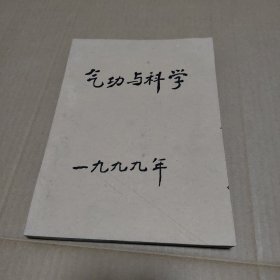 气功与科学
一九九九年